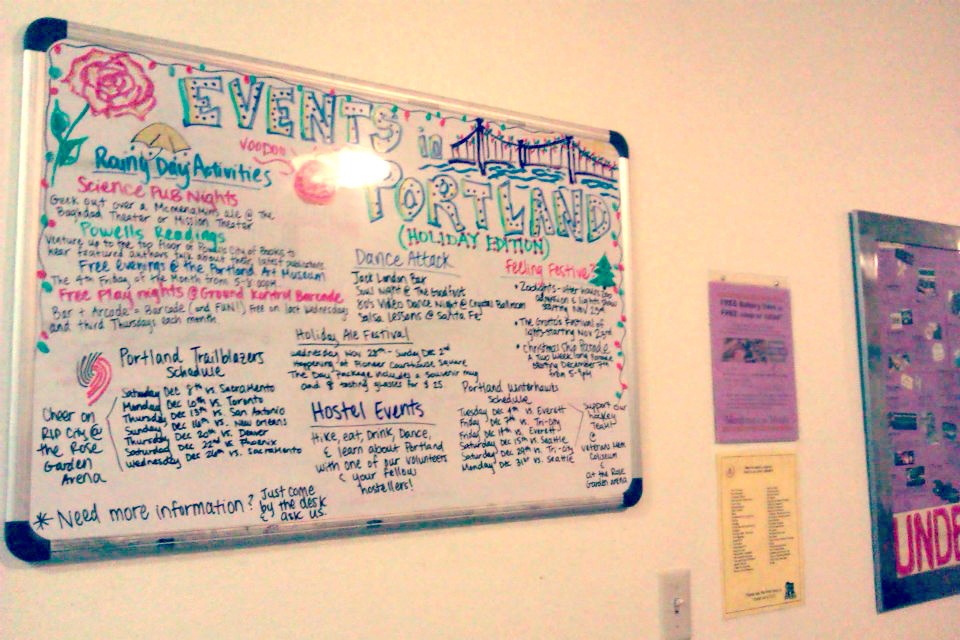 EVENTS in
PORTLAND
(HOLIDAY EDITION)
VOODOO
Rainy Day Activities
Science PUB Nights
Geek out over a McMenamins ale @ the
Baghdad Theater or Mission Theater
Powells Readings
venture up to the top floor of Powells City of Books to
hear featured authors talk about their latest publications
Free evenings @ the Portland Art Museum
The 4th Friday of the month from 5-8:00pm
Free Play nights @ Ground Kontrol Barcade
Bar + Arcade = Barcade (and FUN!) Free on last wednesdays
and third Thursdays each month
Portland Trailblazers
Schedule
Saturday Dec 8th vs Sacramento
Monday Dec 10th vs. Toronto
Thursday Dec 13th vs. San Antonio
Sunday Dec 16th vs. New Orleans
Thursday Dec 20th vs. Denver
Saturday Dec 22nd vs Phoenix
Wednesday Dec 26th vs. Sacramento
Cheer on
RIP City @
the Rose
Garden
Arena
Dance Attack
Jack London Bar
Soul Night @ The Goodfoot
80's Video Dance Night @ Crystal Ballroom
Salsa Lessons @ Santa Fe
Holiday Ale Festival
wednesday Nov 28th - Sunday Dec 2nd
Happening at Pioneer Courthouse Square
The Day Package includes a souvenir mug
and 8 tasting glasses for $25
Hostel Events
Hike, eat, Drink, Dance,
& learn about Portland
with one of our volunteers
& your fellow
hostellers!
Feeling Festive?
• Zoolights - after hours zoo
admission & lights
starting Nov 23rd
• The Grotto's Festival of
lights - starting Nov 23rd
• Christmas Ship Parade
A Two Week long Parade
starting December 7th
from 5-9pm
Portland Winterhawks
Schedule
Tuesday Dec 4th vs. Everett
Friday Dec 7th vs. Tri-city
Friday Dec 14th vs. Everett
Saturday Dec 15th vs. Seattle
Saturday Dec 29th vs. Tri-city
Monday Dec 31st vs. Seattle
Support our
hockey
Team!
@
veterans Mem
Coliseum
&
at the Rose
Garden arena
*Need more information? Just come
by the desk
& ask us.
UNDE